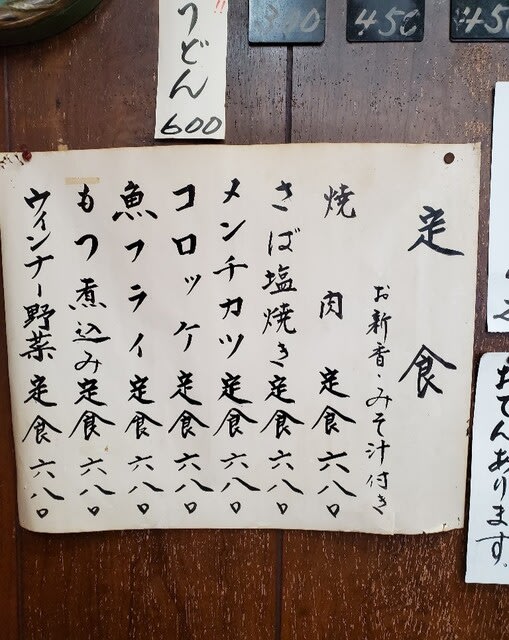 うどん
600
450
定食
お新香・みそ汁付き
焼肉定食 六八〇
さば塩焼き定食 六八〇
メンチカツ定食 六八〇
コロッケ定食 六八〇
魚フライ定食 六八〇
もつ煮込み定食 六八〇
ウィンナー野菜定食 六八〇
おでんあります。